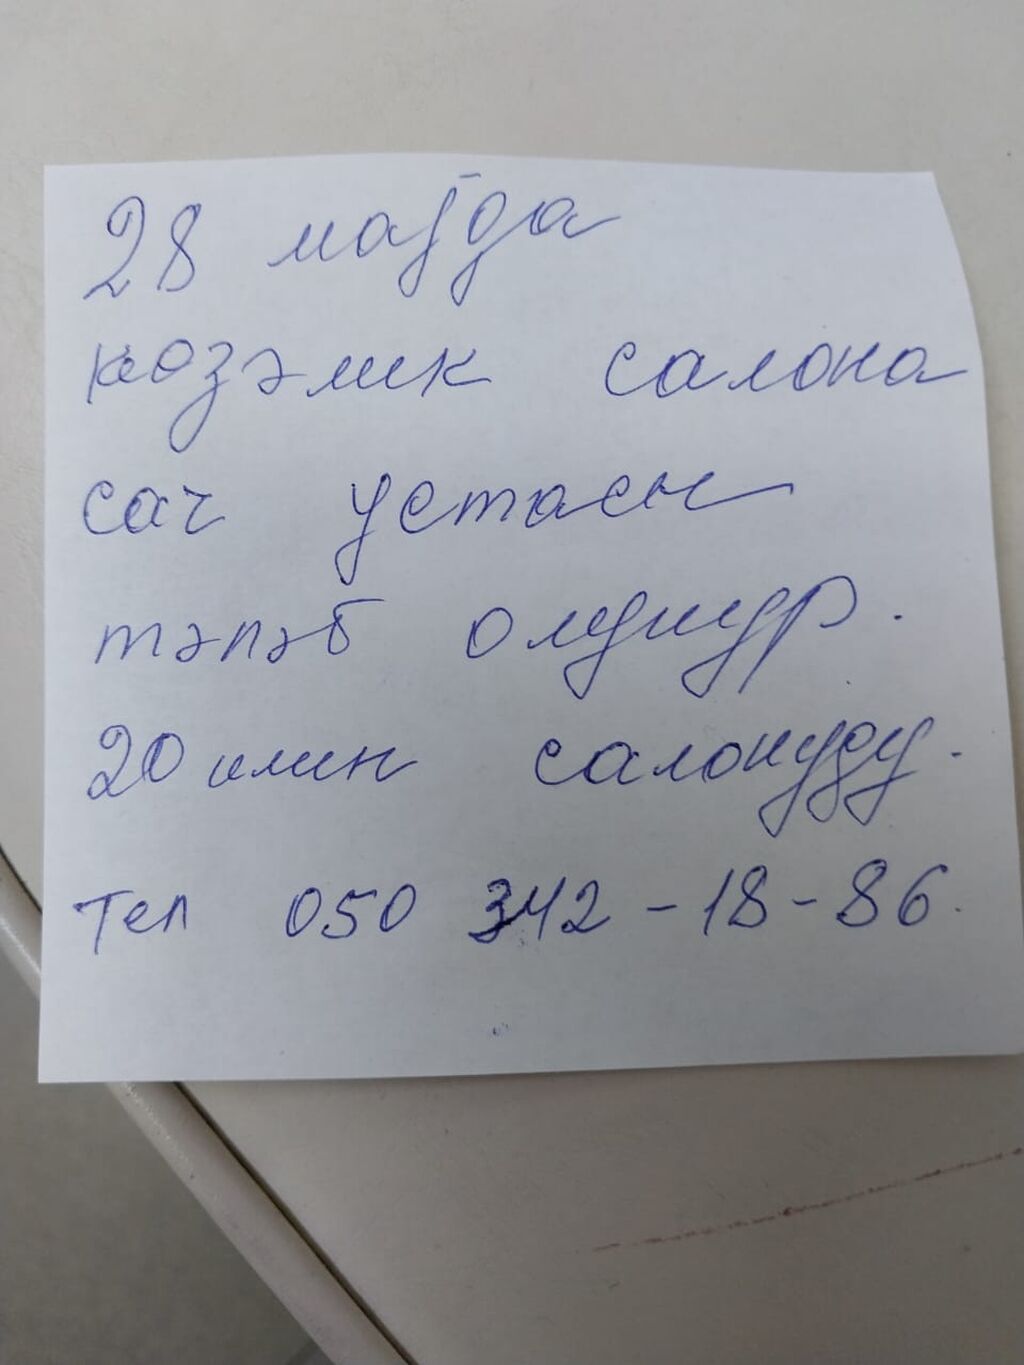 28 мајда
көзәлик салона
сач устасы
тәләб олунур.
20 илин салонуду.
Тел 050 342-18-86.